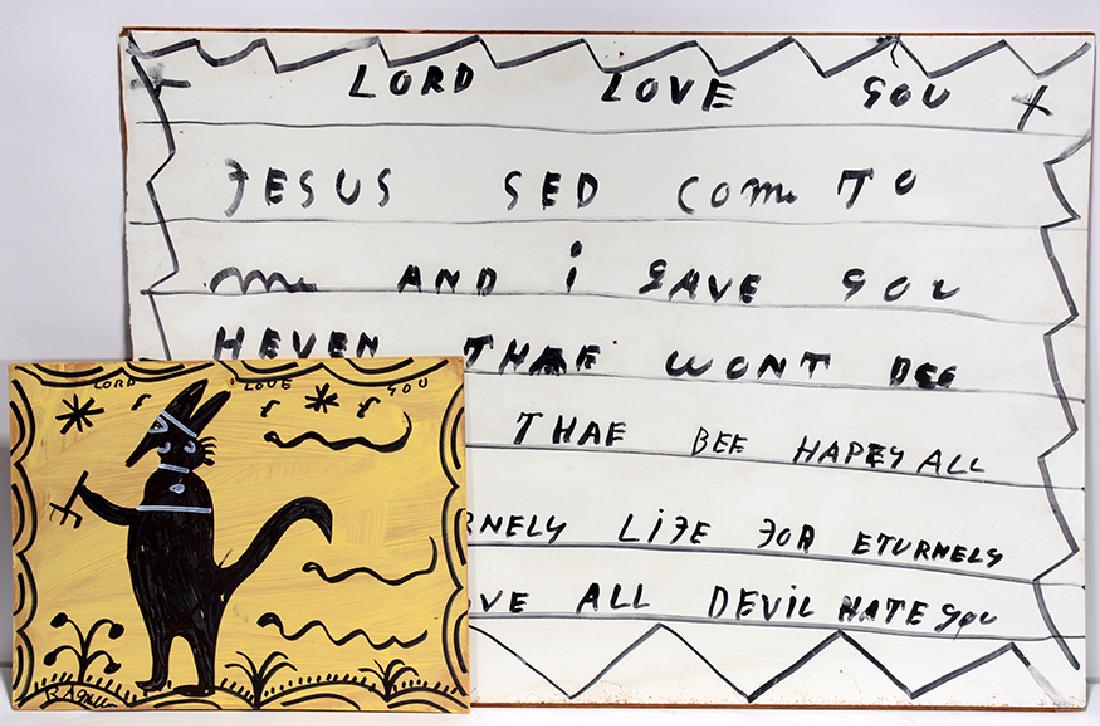 LORD LOVE YOU
JESUS SED Come TO
me AND i GAVE YOU
HEVEN THAE WONT DEE
THAE BEE HAPEY ALL
RNELY LiFE FOR ETURNELY
VE ALL DEViL HATE YOU
LORD LOVE YOU